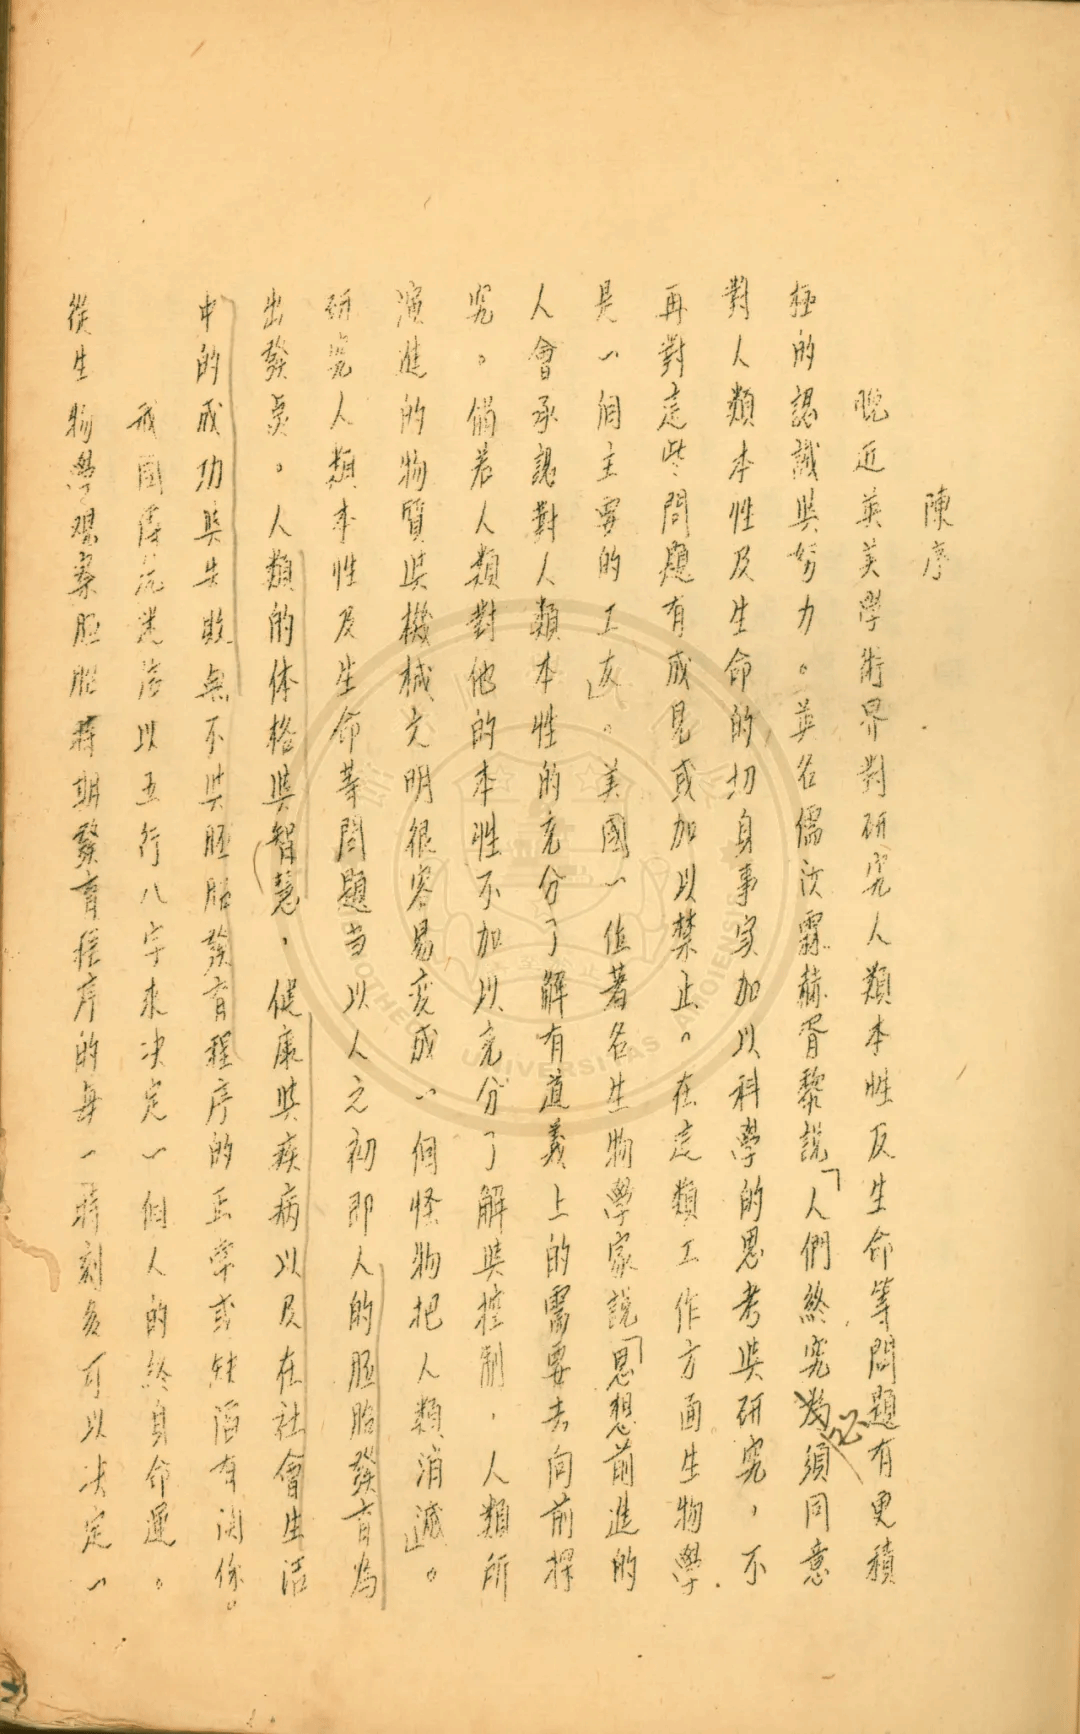 陳序
晚近英美學術界對研究人類本性及生命等問題有更積
極的認識與努力。英名儒汶霖赫胥黎說「人們終究必須同意
對人類本性及生命的切身事实加以科學的思考與研究，不
再對這些問題有成見或加以禁止。在這類工作方面生物學
是一個主要的工友」。美國一位著名生物學家說「思想前進的
人會承認對人類本性的充分了解有道義上的需要去向前探
究。倘若人類對他的本性不加以充分了解與控制，人類所
演進的物質與機械文明很容易变成一個怪物把人類消滅」。
研究人類本性及生命等問題当以人之初即人的胚胎發育為
出發點。人類的体格與智慧，健康與疾病以及在社會生活
中的成功與失敗無不與胚胎發育程序的正常或缺陷有関係。
我國傳說迷信以五行八字來决定一個人的終身命運。
從生物學观察胚胎時期發育程序的每一時刻多可以决定一
UNIVERSITAS AMOIENSIS